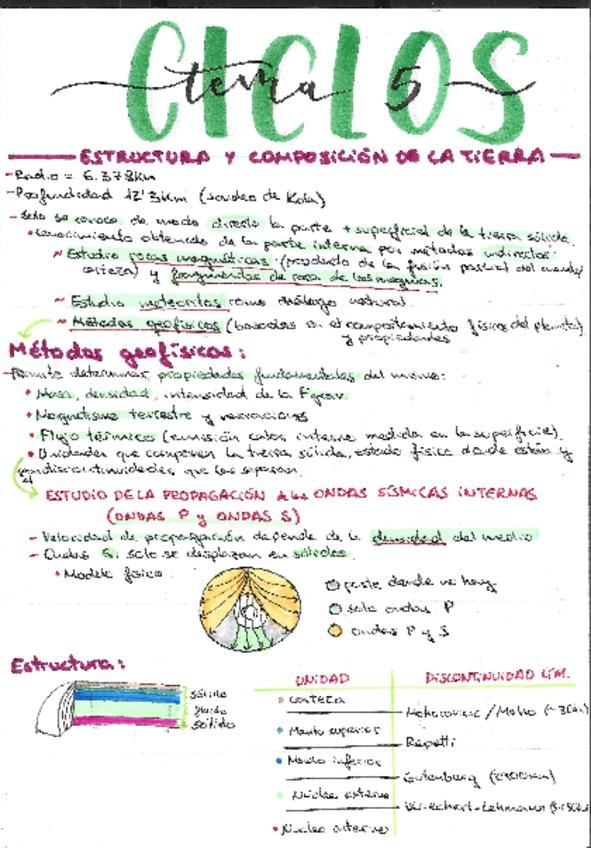 CICLOS
tema 5
ESTRUCTURA Y COMPOSICIÓN DE LA TIERRA
- Radio = 6.378km
- Profundidad 12'3km (sondeo de Kola)
- Solo se conoce de modo directo la parte + superficial de la tierra sólida.
• Conocimiento obtenido de la parte interna por métodos indirectos:
~ Estudio rocas magmáticas (producto de la fusión parcial del manto/
corteza) y fragmentos de roca de los magmas.
~ Estudio meteoritos como análogo natural
~ Métodos geofísicos (basados en el comportamiento físico del planeta)
y propiedades
Métodos geofísicos:
Permite determinar propiedades fundamentales del mismo:
• Masa, densidad, intensidad de la Fgrav.
• Magnetismo terrestre y variaciones
• Flujo térmico (emisión calor interno medida en la superficie).
• Unidades que componen la tierra sólida, estado físico donde están y
discontinuidades que las separan.
ESTUDIO DE LA PROPAGACIÓN de las ONDAS SÍSMICAS INTERNAS
(ONDAS P y ONDAS S)
- Velocidad de propagación depende de la densidad del medio
- Ondas S: solo se desplazan en sólidos.
• Modelo físico:
parte donde no hay
solo ondas P
ondas P y S
Estructura:
sólido
fluido
sólido
UNIDAD
DISCONTINUIDAD LÍM.
• Corteza
Mohorovicic / Moho
• Manto superior
Repetti
• Manto inferior
Gutenberg (2900km)
• Núcleo externo
Wiechert-Lehmann
• Núcleo interno